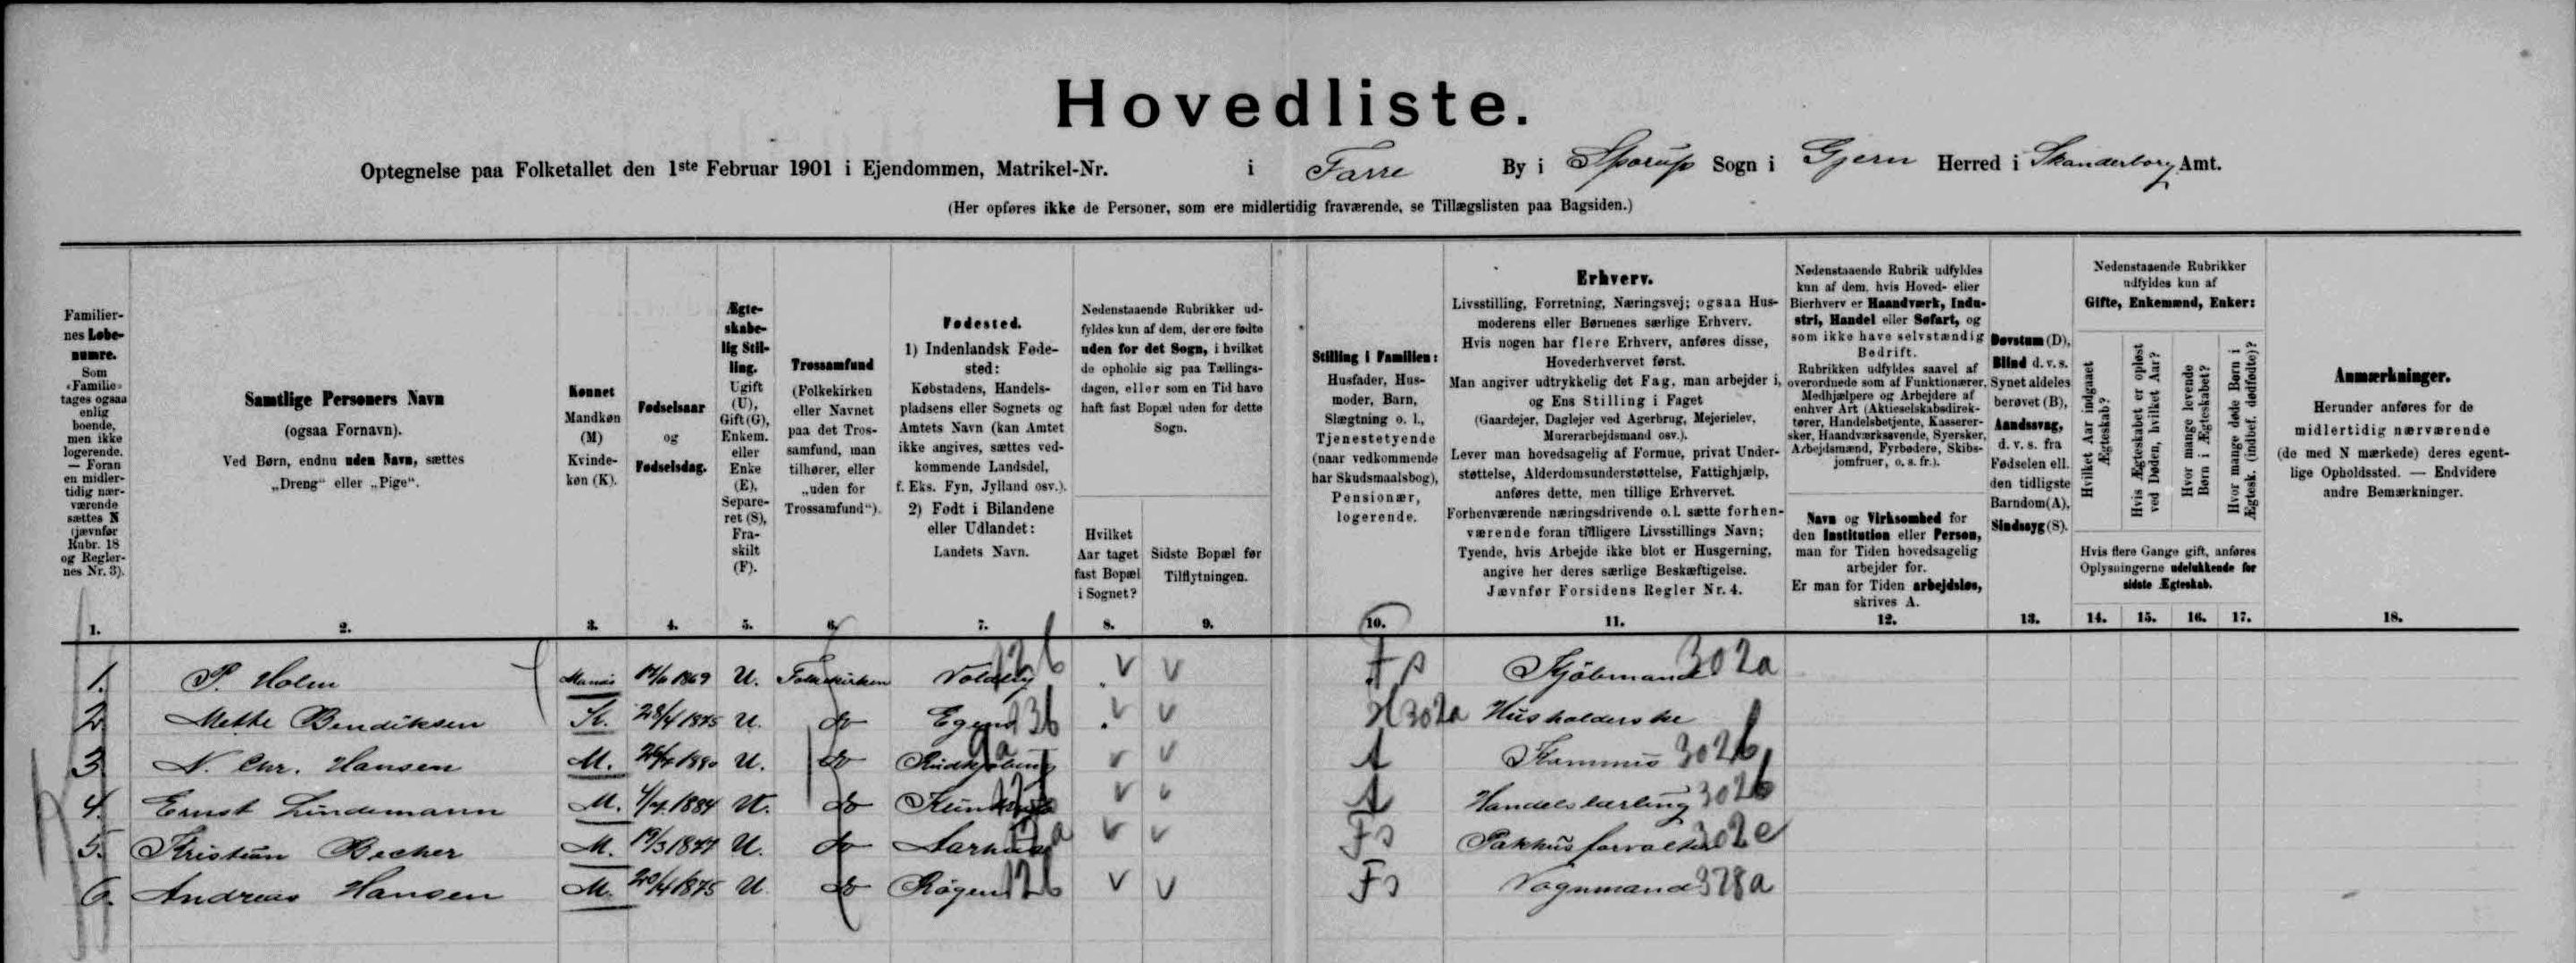 Hovedliste.
Optegnelse paa Folketallet den 1ste Februar 1901 i Ejendommen, Matrikel-Nr. i Farre By i Sporup Sogn i Gjern Herred i Skanderborg Amt.
(Her opføres ikke de Personer, som ere midlertidig fraværende, se Tillægslisten paa Bagsiden.)
Familier-
nes Løbe-
numre.
Som
„Familie“
tages ogsaa
enlig
boende,
men ikke
logerende.
— Foran
en midler-
tidig nær-
værende
sættes N
(jævnfør
Rubr. 18
og Regler-
nes Nr. 3).
1.
Samtlige Personers Navn
(ogsaa Fornavn).
Ved Børn, endnu uden Navn, sættes
„Dreng“ eller „Pige“.
2.
Kønnet
Mandkøn
(M)
Kvinde-
køn (K).
3.
Fødselsaar
og
Fødselsdag.
4.
Ægte-
skabe-
lig Stil-
ling.
Ugift
(U),
Gift (G),
Enkem.
eller
Enke
(E),
Separe-
ret (S),
Fra-
skilt
(F).
5.
Trossamfund
(Folkekirken
eller Navnet
paa det Tros-
samfund, man
tilhører, eller
„uden for
Trossamfund“).
6.
Fødested.
1) Indenlandsk Føde-
sted:
Købstadens, Handels-
pladsens eller Sognets og
Amtets Navn (kan Amtet
ikke angives, sættes ved-
kommende Landsdel,
f. Eks. Fyn, Jylland osv.).
2) Født i Bilandene
eller Udlandet:
Landets Navn.
7.
Nedenstaaende Rubrikker ud-
fyldes kun af dem, der ere fødte
uden for det Sogn, i hvilket
de opholde sig paa Tællings-
dagen, eller som en Tid have
haft fast Bopæl uden for dette
Sogn.
Hvilket
Aar taget
fast Bopæl
i Sognet?
8.
Sidste Bopæl før
Tilflytningen.
9.
Stilling i Familien:
Husfader, Hus-
moder, Barn,
Slægtning o. l.,
Tjenestetyende
(naar vedkommende
har Skudsmaalsbog),
Pensionær,
logerende.
10.
Erhverv.
Livsstilling, Forretning, Næringsvej; ogsaa Hus-
moderens eller Børnenes særlige Erhverv.
Hvis nogen har flere Erhverv, anføres disse,
Hovederhvervet først.
Man angiver udtrykkelig det Fag, man arbejder i,
og Ens Stilling i Faget
(Gaardejer, Daglejer ved Agerbrug, Mejerielev,
Murerarbejdsmand osv.).
Lever man hovedsagelig af Formue, privat Under-
støttelse, Alderdomsunderstøttelse, Fattighjælp,
anføres dette, men tillige Erhvervet.
Forhenværende næringsdrivende o.l. sætte forhen-
værende foran tidligere Livsstillings Navn;
Tyende, hvis Arbejde ikke blot er Husgerning,
angive her deres særlige Beskæftigelse.
Jævnfør Forsidens Regler Nr. 4.
11.
Nedenstaaende Rubrik udfyldes
kun af dem, hvis Hoved- eller
Bierhverv er Haandværk, Indu-
stri, Handel eller Søfart, og
som ikke have selvstændig
Bedrift.
Rubrikken udfyldes saavel af
overordnede som af Funktionærer,
Medhjælpere og Arbejdere af
enhver Art (Aktieselskabsdirek-
tører, Handelsbetjente, Kasserer-
sker, Haandværkssvende, Syersker,
Arbejdsmænd, Fyrbødere, Skibs-
jomfruer, o. s. fr.).
Navn og Virksomhed for
den Institution eller Person,
man for Tiden hovedsagelig
arbejder for.
Er man for Tiden arbejdsløs,
skrives A.
12.
Døvstum (D),
Blind d. v. s.
Synet aldeles
berøvet (B),
Aandssvag,
d. v. s. fra
Fødselen ell.
den tidligste
Barndom (A),
Sindssyg (S).
13.
Nedenstaaende Rubrikker
udfyldes kun af
Gifte, Enkemænd, Enker:
Hvilket Aar indgaaet
Ægteskab?
Hvis Ægteskabet er opløst
ved Døden, hvilket Aar?
Hvor mange levende
Børn i Ægteskabet?
Hvor mange døde Børn i
Ægtesk. (indbef. dødfødte)?
Hvis flere Gange gift, anføres
Oplysningerne udelukkende for
sidste Ægteskab.
14. 15. 16. 17.
Anmærkninger.
Herunder anføres for de
midlertidig nærværende
(de med N mærkede) deres egent-
lige Opholdssted. — Endvidere
andre Bemærkninger.
18.
1. P. Holm 1869 U. Folkekirken Voldby 12b V V Kjöbmand 302a
2. Mette Bendiksen K. 28/4 1875 U. do Egens 13b V V H 302a Husholderske
3. N. Chr. Hansen M. 1880 U. do Rudkjøbing 9a V V A Kommis 302b
4. Ernst Lindemann M. 4/4 1884 U. do V V A Handelslærling 302b
5. Kristian Becker M. U. do Aarhus V V Fs Pakhusforvalter 302c
6. Andreas Hansen M. 20/4 1875 U do Røgen 12b V V Fs Vognmand 378a